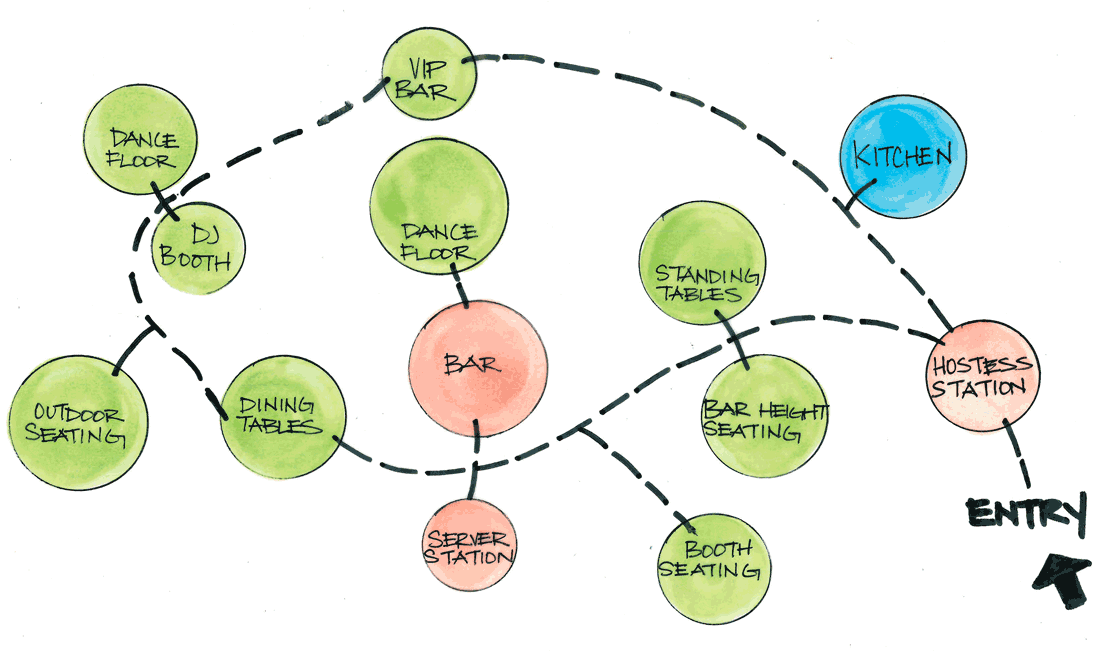 VIP
BAR
DANCE
FLOOR
KITCHEN
DJ
BOOTH
DANCE
FLOOR
STANDING
TABLES
HOSTESS
STATION
BAR
OUTDOOR
SEATING
DINING
TABLES
BAR HEIGHT
SEATING
ENTRY
SERVER
STATION
BOOTH
SEATING